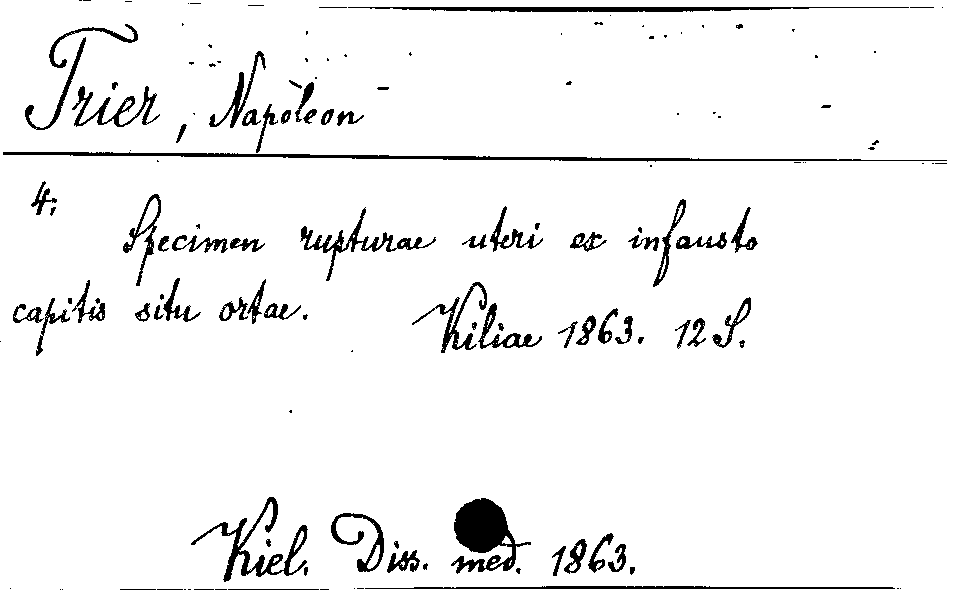 Trier, Napoleon
4:
Specimen rupturae uteri ex infausto
capitis situ ortae.
Kiliae 1863. 12 S.
Kiel. Diss. med. 1863.